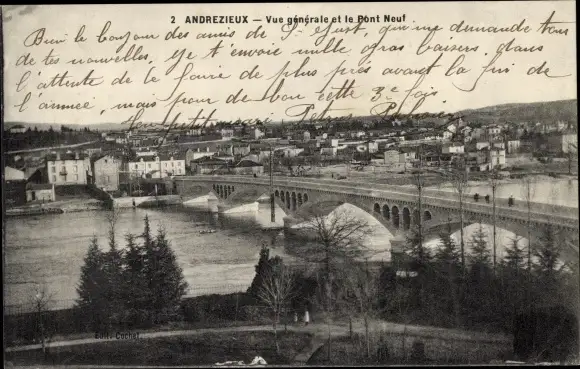 2 ANDREZIEUX — Vue générale et le Pont Neuf
Bien le bonjour des amis de St Just, qui me demande tous
de tes nouvelles, je t'envoie mille gros baisers dans
l'attente de le faire de plus près avant la fin de
l'année, mais pour de bon cette 3e fois.
Ton petit mari
Edit. Cuchet